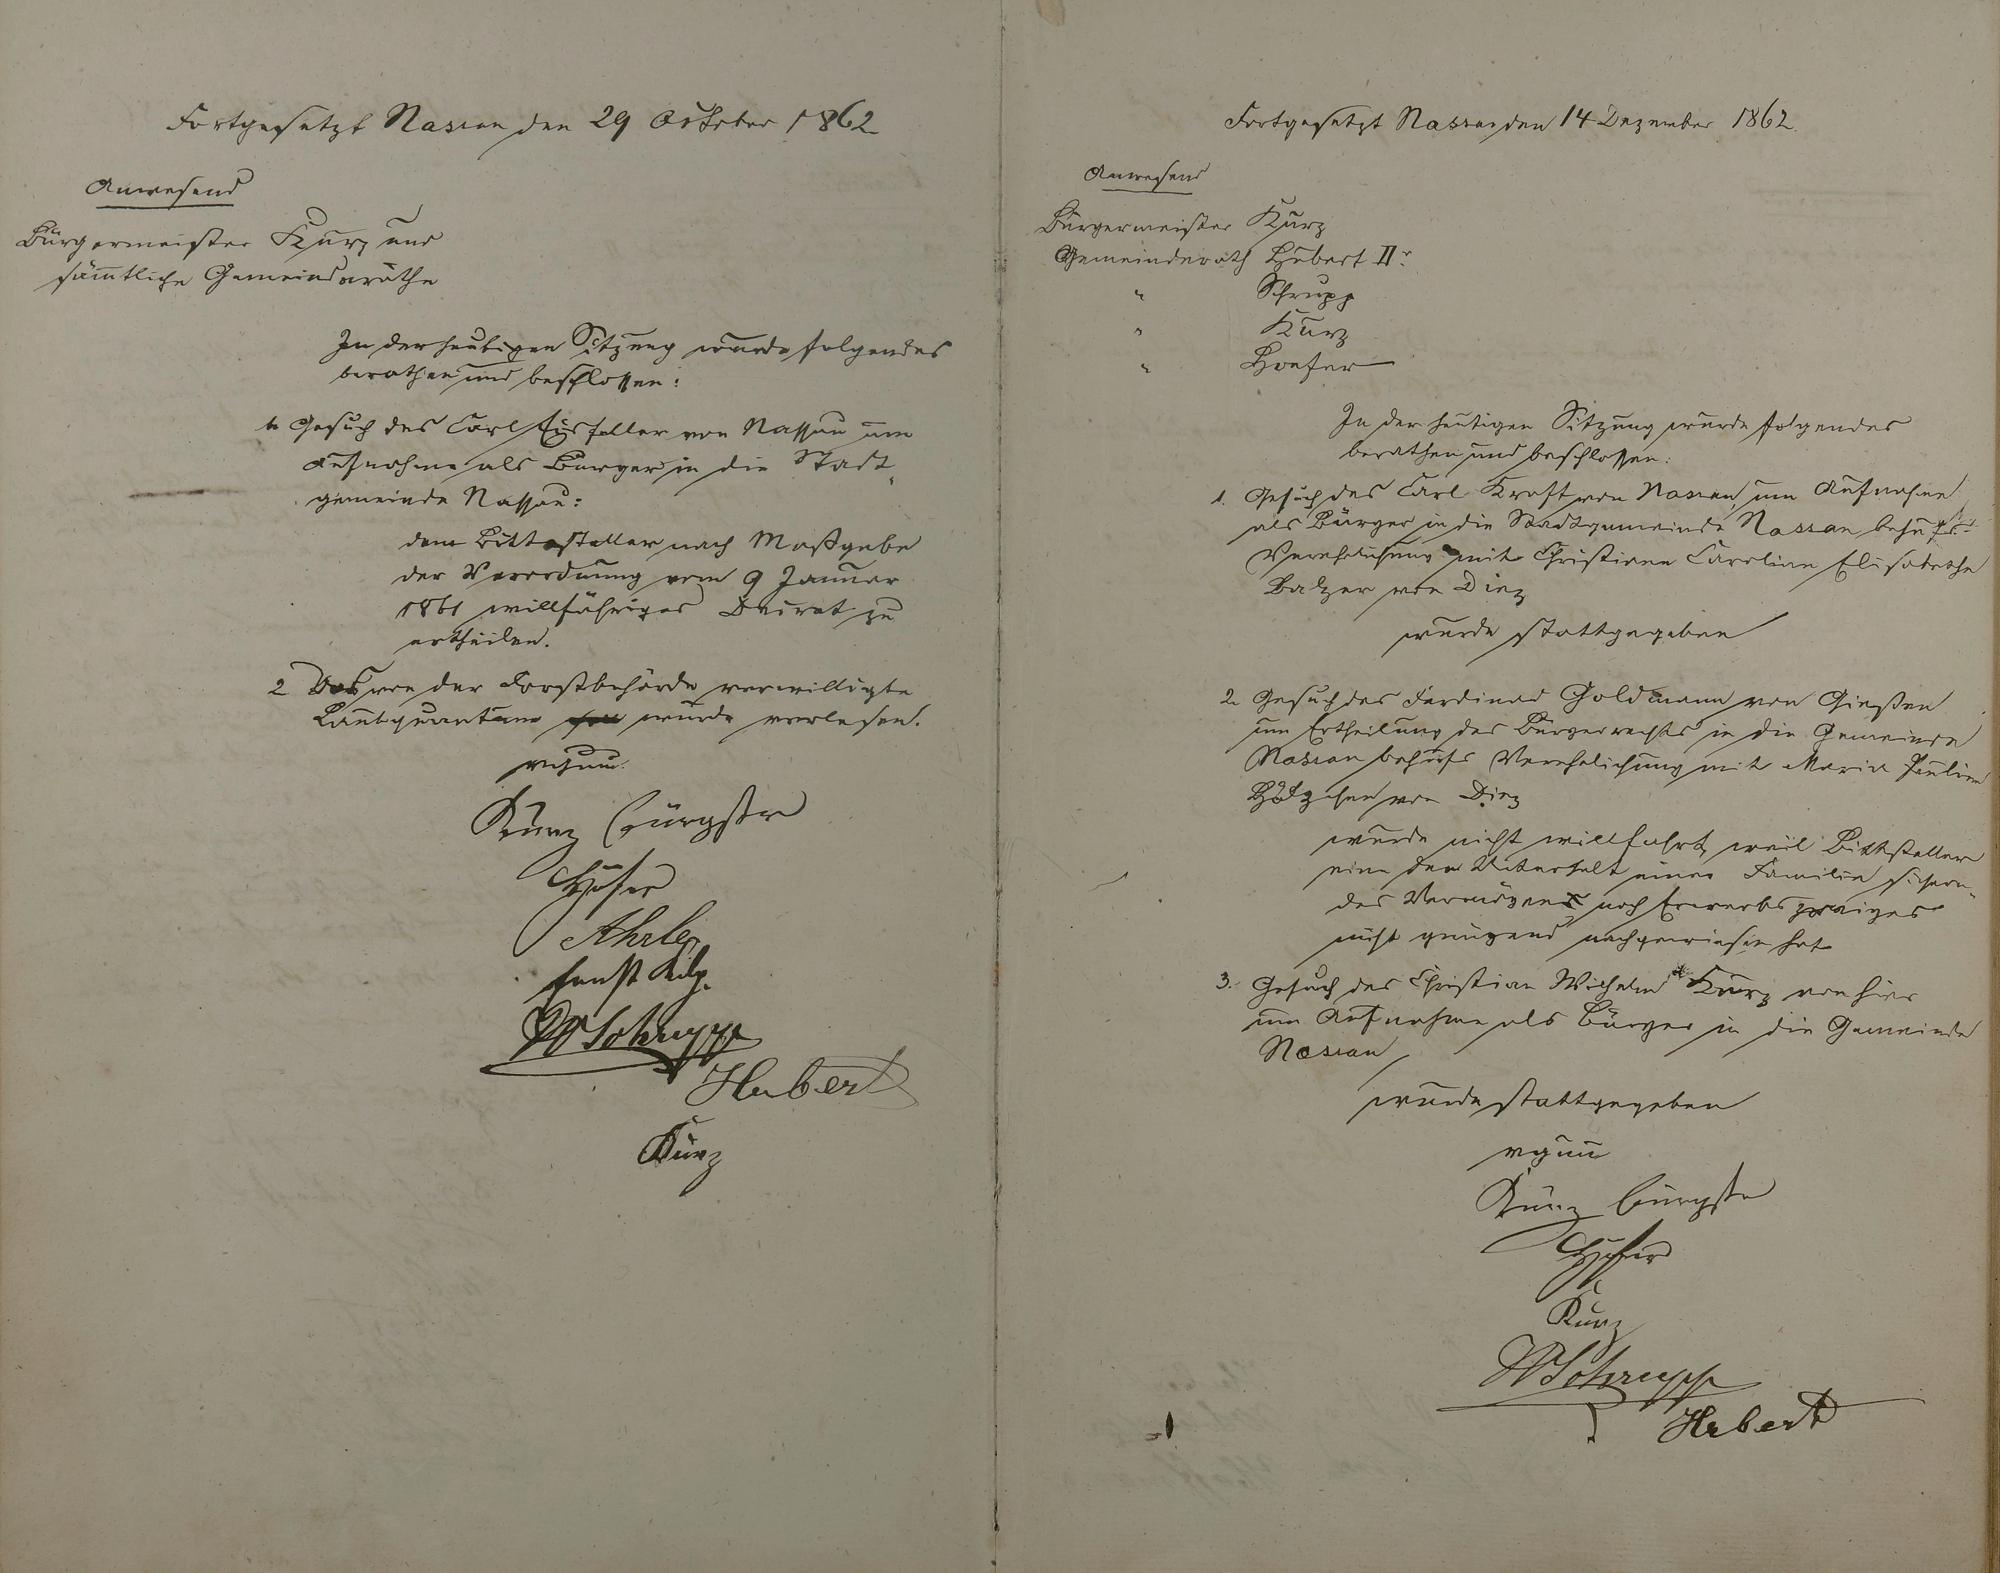 Fortgesetzt Nassau den 29 October 1862
Anwesend
Bürgermeister Kurz und
sämtliche Gemeinderäthe
In der heutigen Sitzung wurde folgendes
berathen und beschlossen:
1. Gesuch des Carl von Nassau um
Aufnahme als Bürger in die Stadt-
gemeinde Nassau:
dem Bittsteller nach Maßgabe
der Verordnung vom 9 Januar
1861 willfähriges Decret zu
ertheilen.
2 Das von der Forstbehörde verwilligte
Laubquantum wurde verlesen.
Kurz Bürgstr
Höfer
Ernst
W Schrupp
Hubert
Kurz
Fortgesetzt Nassau den 14 Dezember 1862.
Anwesend
Bürgermeister Kurz
Gemeinderath Hubert IIr
" Schrupp
" Kurz
" Hoefer
In der heutigen Sitzung wurde folgendes
berathen und beschlossen:
1. Gesuch des Carl Kraft von Nassau um Aufnahme
als Bürger in die Stadtgemeinde Nassau behufs
Verehelichung mit Christiane Caroline Elisabethe
Balzer von Diez
wurde stattgegeben
2. Gesuch des Ferdinand Goldmann von Gießen
um Ertheilung des Bürgerrechts in die Gemeinde
Nassau behufs Verehelichung mit Maria Pauline
von Diez
wurde nicht willfahrt, weil Bittsteller
eine den Unterhalt einer Familie sichern-
des Vermögens noch Erwerbszweiges
nicht genügend nachgewiesen hat
3. Gesuch des Christian Wilhelm Kurz von hier
um Aufnahme als Bürger in die Gemeinde
Nassau
wurde stattgegeben
Kurz Bürgstr
Höfer
Kurz
W Schrupp
Hubert